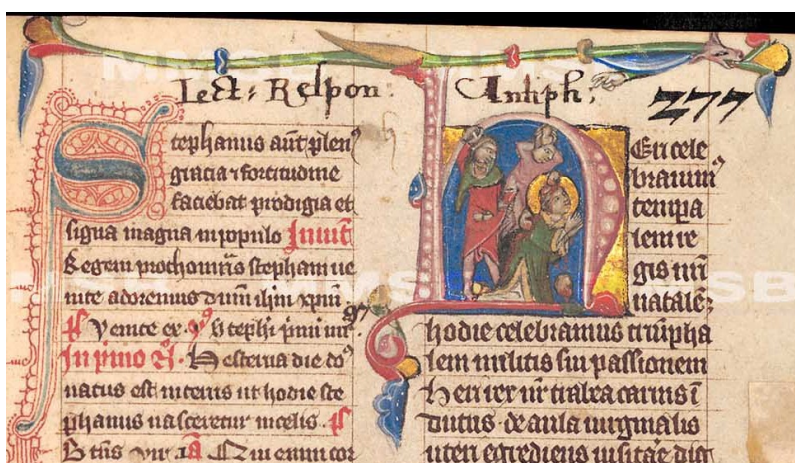 Lect: Respon: Antiph:
277
Stephanus aūt plenꝰ
gracia ⁊ fortitudine
faciebat prodigia et
signa magna in populo Inuit̄
Regem prothomr̄is stephani ue
nite adoremus dūm ihm xpm
ps Venite ex. v̓
In primo N̄. Hesterna die do
natus est in terris ut hodie ste
phanus nasceretur in celis. ps
Btūs vir. a Qui enim cor
Heri cele
brauimꝰ
tempa
lem re
gis nr̄i
natalē:
hodie celebramus triūpha
lem militis sui passionem
Heri rex nr̄ trabea carnis ī
dutus de aula uirginalis
uteri egrediens uisitāe dig
MMSB